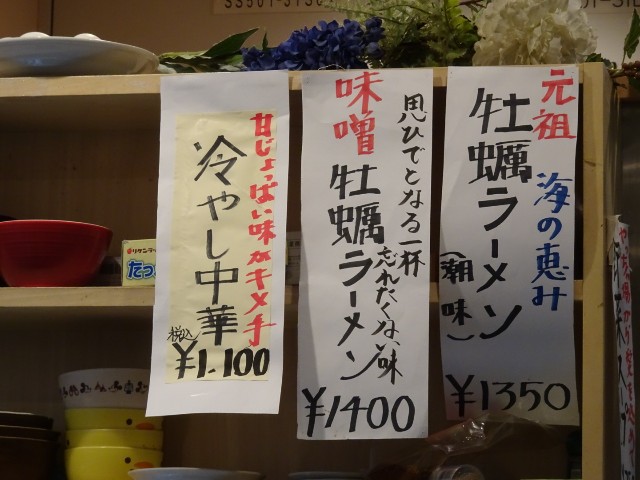 元祖
海の恵み
牡蠣ラーメン
(潮味)
¥1350
思ひでとなる一杯
忘れたくない味
味噌
牡蠣ラーメン
¥1400
甘じょっぱい味がキメ手
冷やし中華
税込
¥1,100